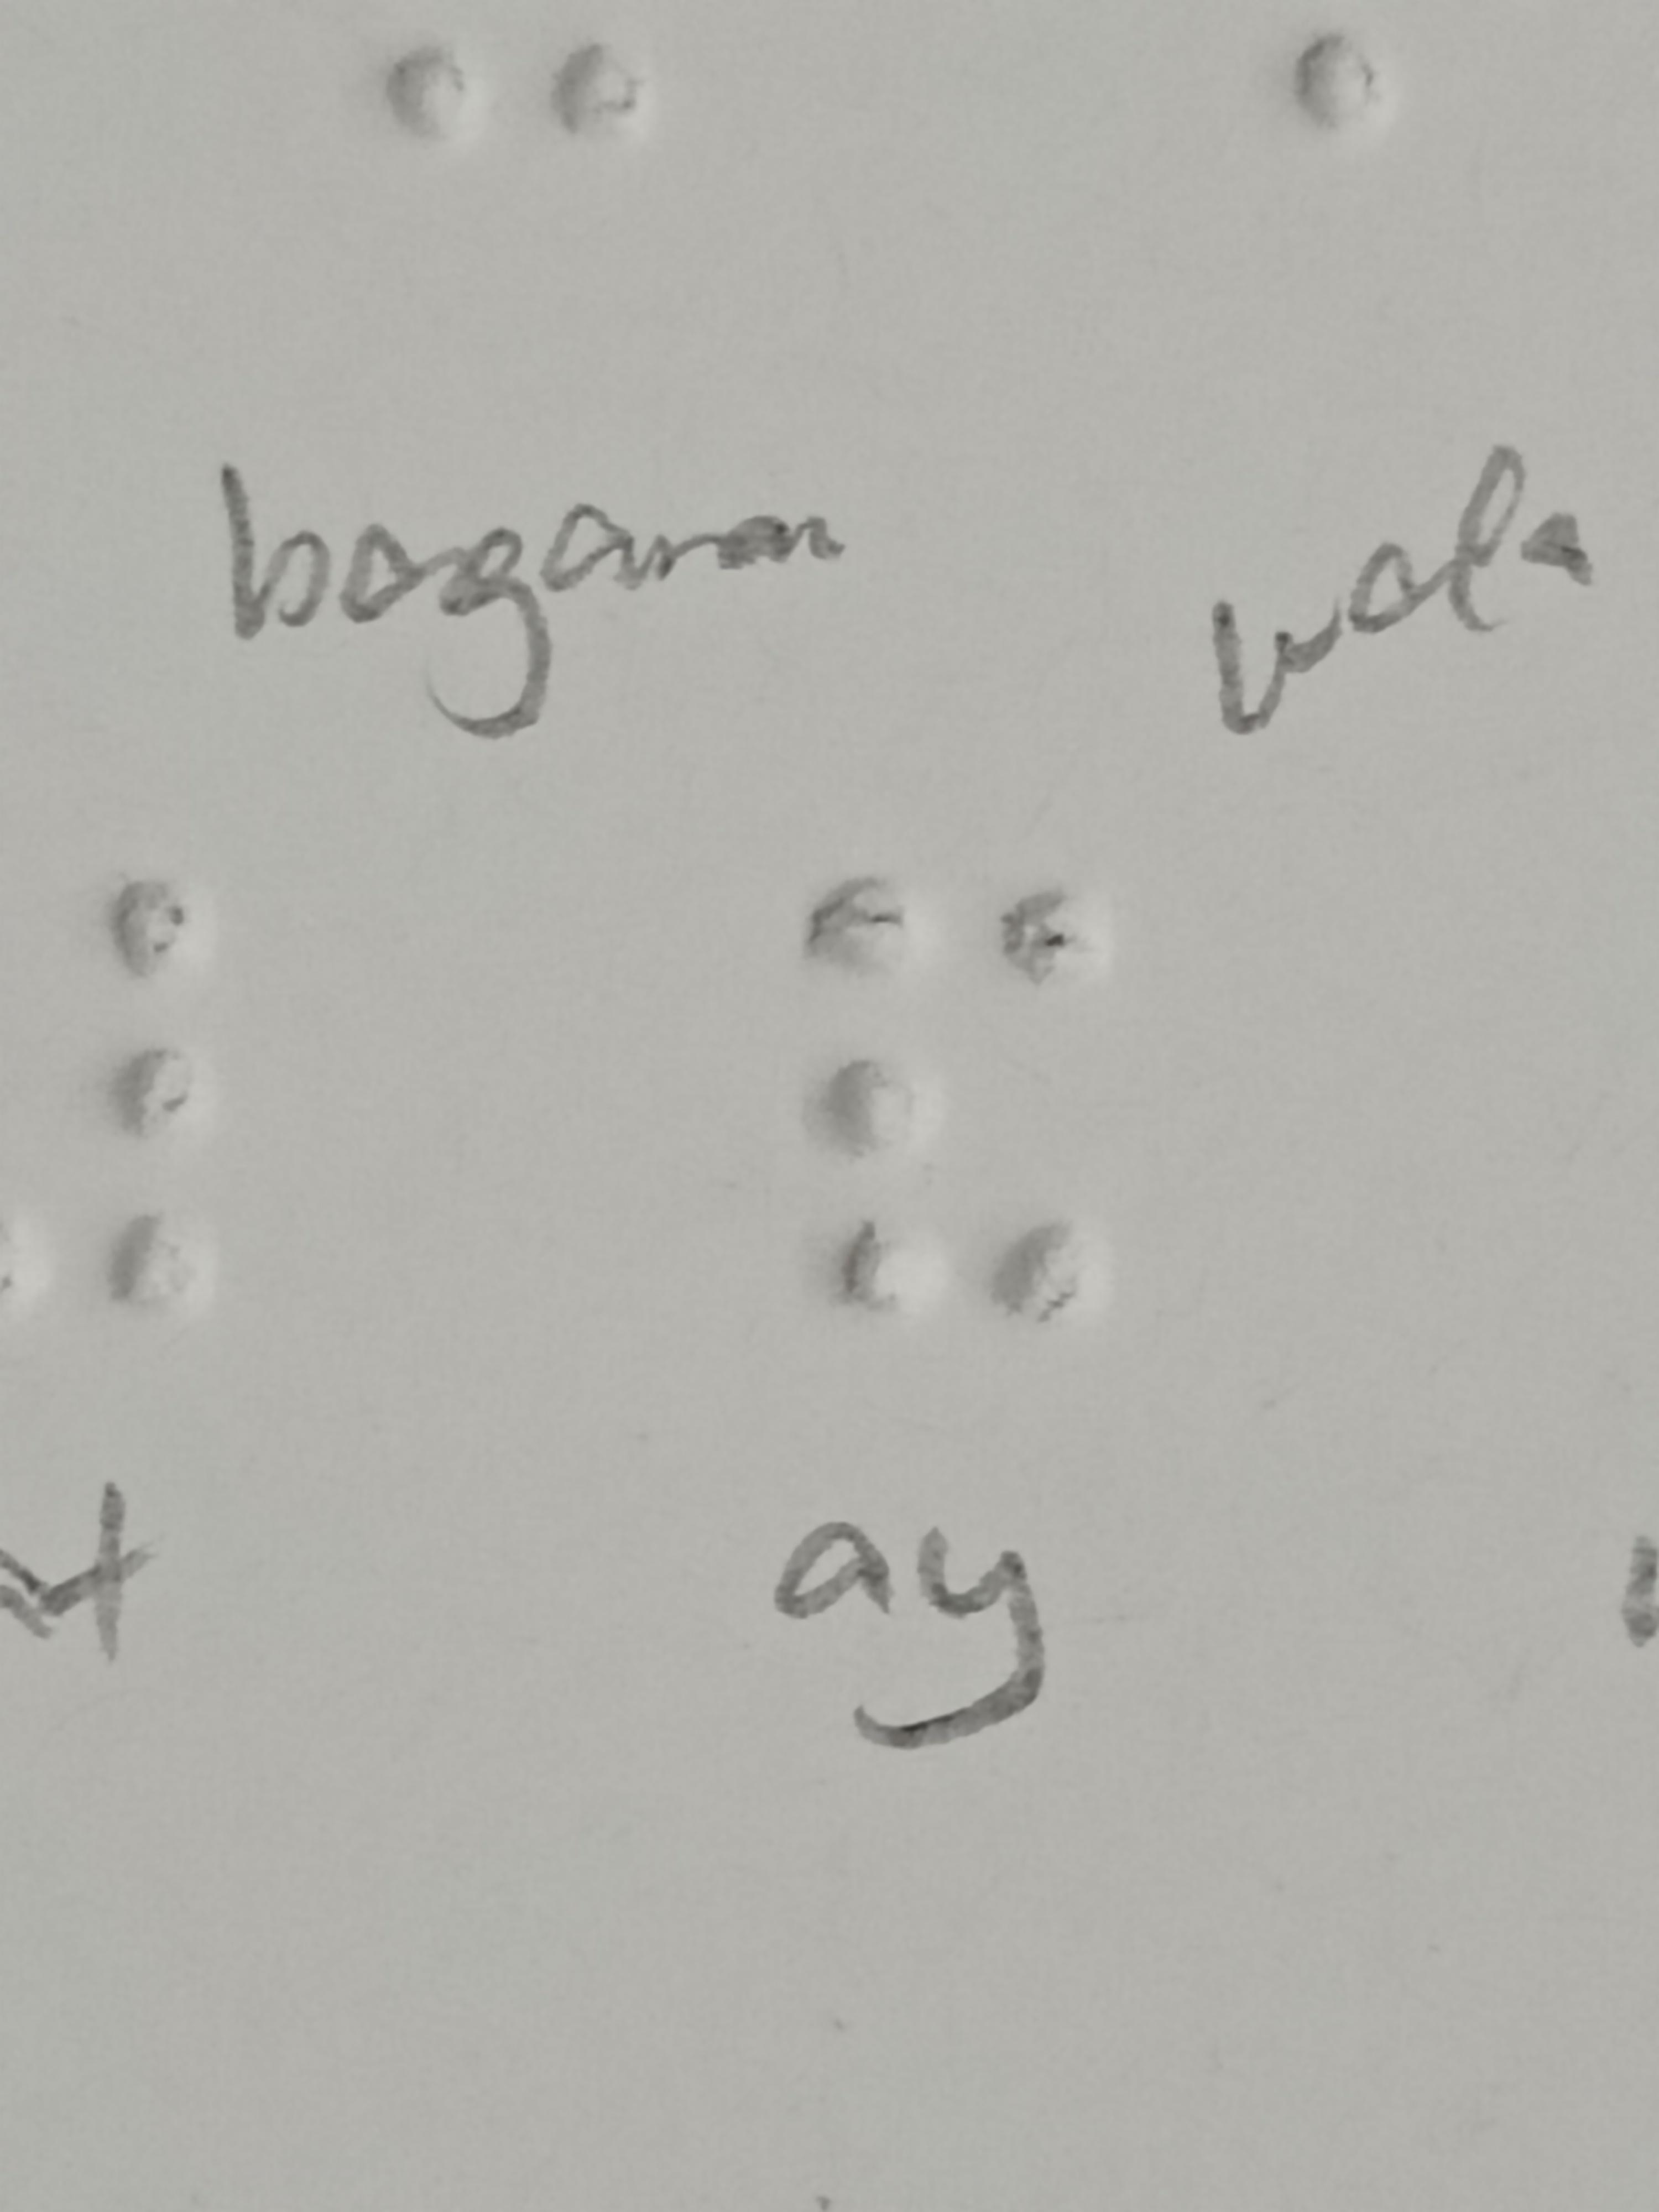 bagaman wala
ay